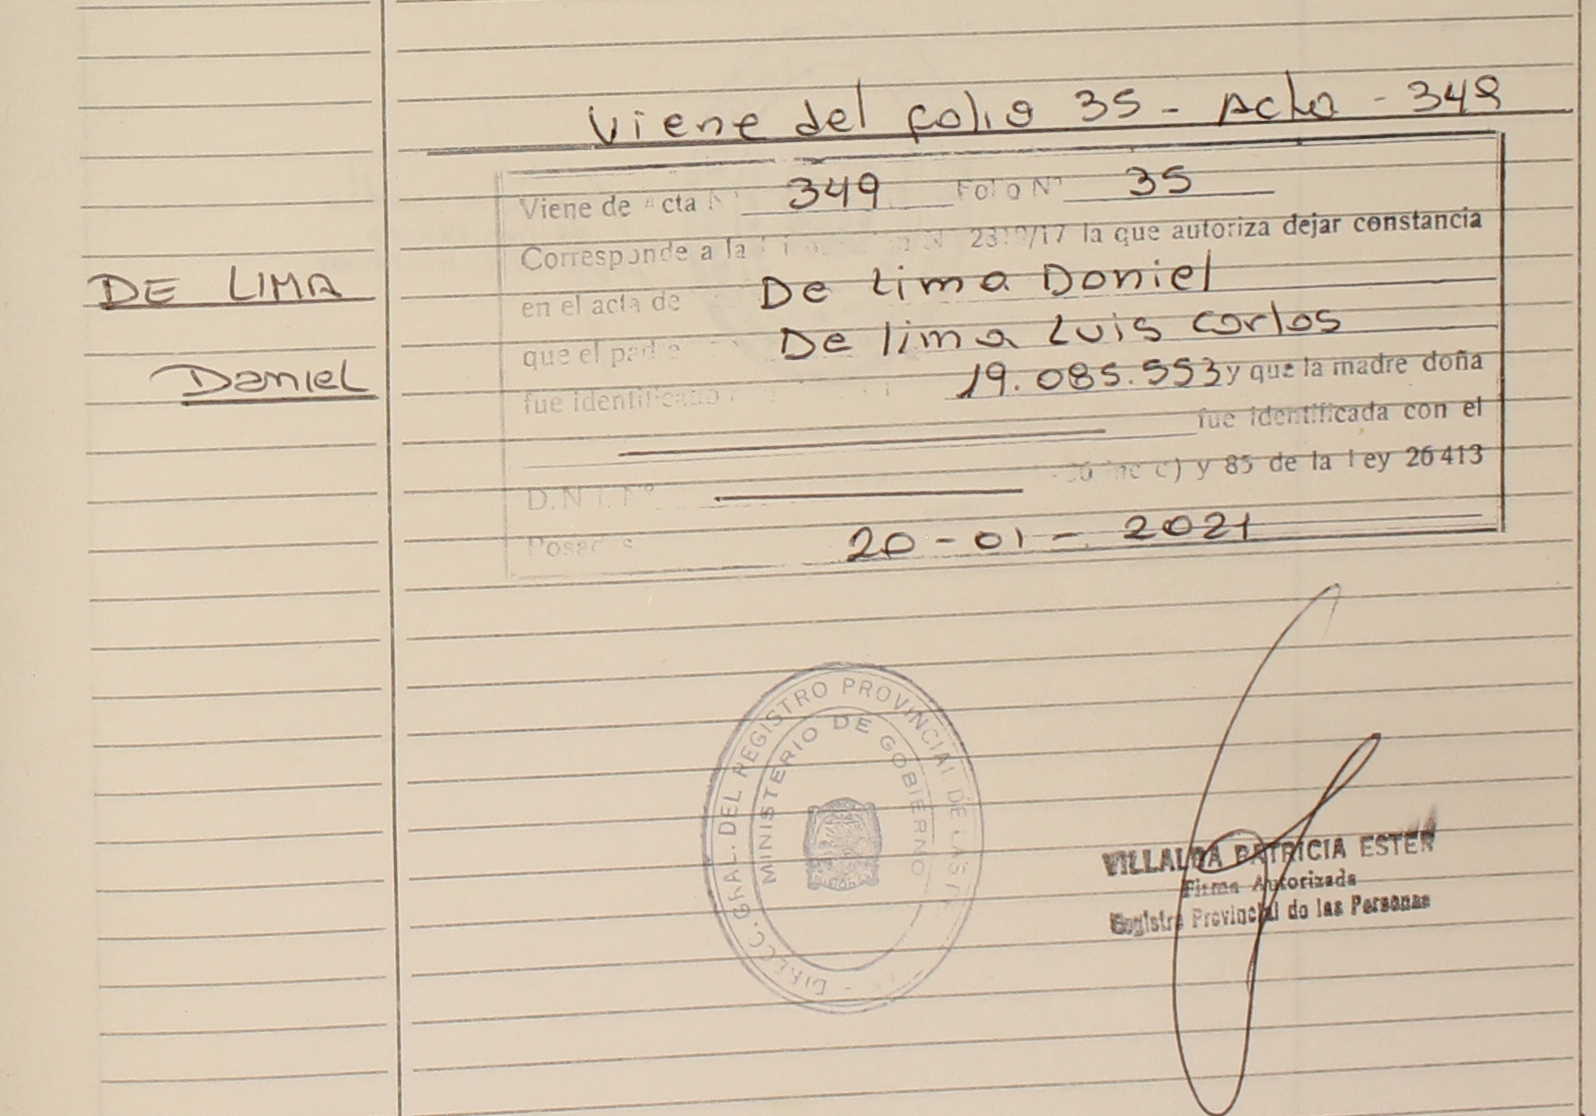 Viene del folio 35 - Acta - 349
Viene de Acta N° 349 Folio N° 35
Corresponde a la 23 /17 la que autoriza dejar constancia
DE LIMA
en el acta de De Lima Daniel
que el padre De lima Luis Carlos
Daniel
fue identificado 19.085.553 y que la madre doña
fue identificada con el
D.N.I. N° c) y 85 de la Ley 26413
Posadas 20-01-2021
DIRECC. GRAL. DEL REGISTRO PROVINCIAL DE LAS
MINISTERIO DE GOBIERNO
VILLALBA PATRICIA ESTER
Firma Autorizada
Registro Provincial de las Personas